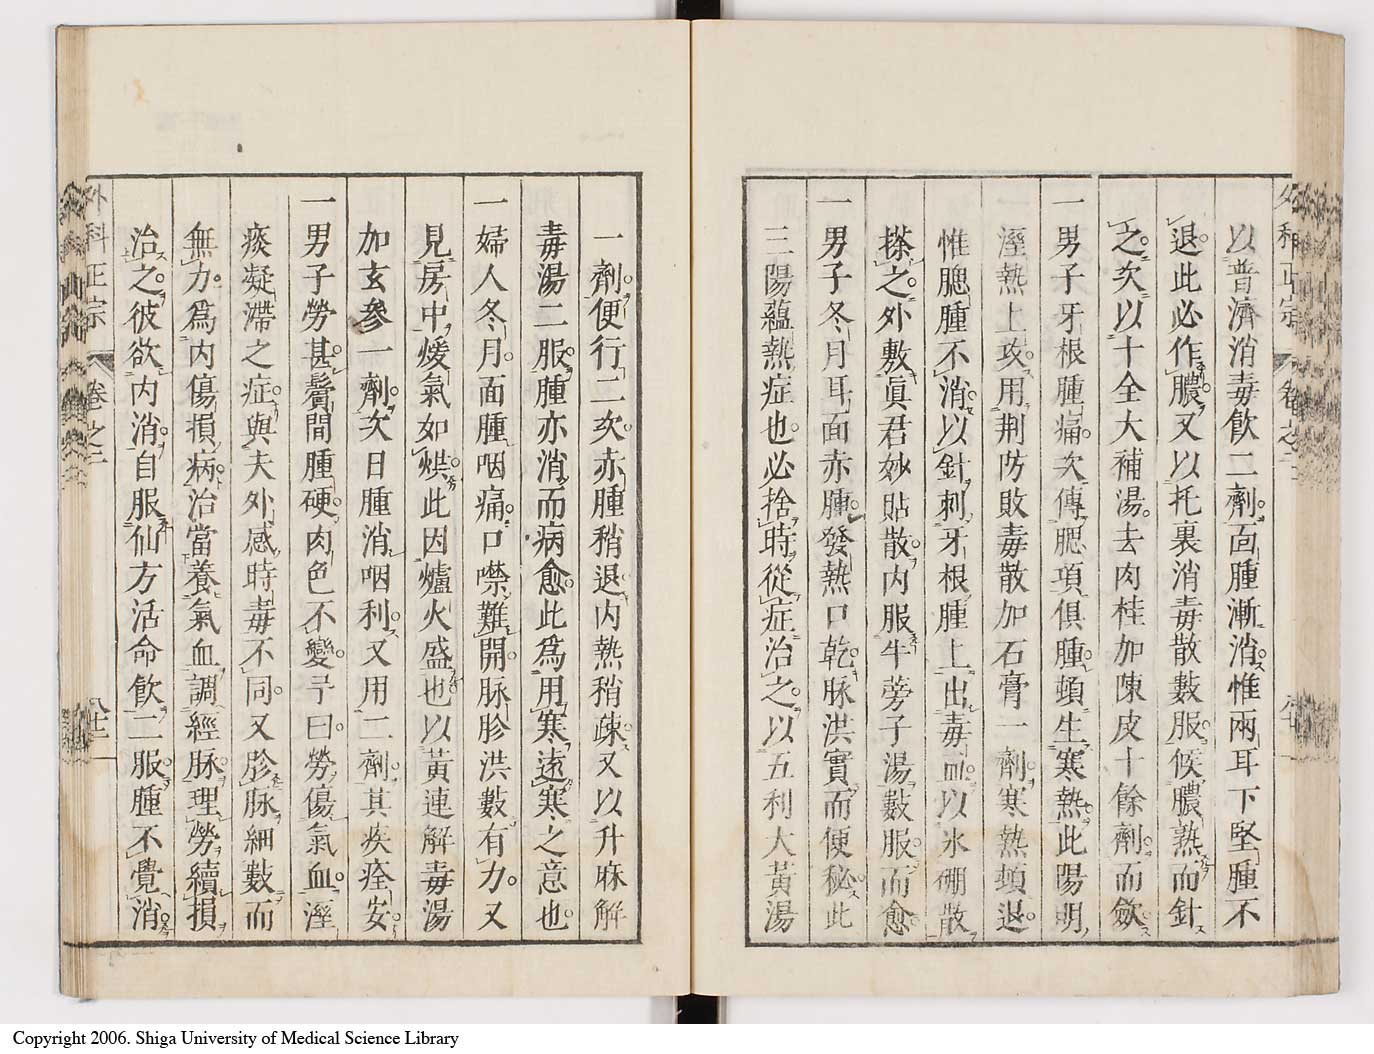 以普濟消毒飲二劑面腫漸消惟兩耳下堅腫不
退此必作膿又以托裏消毒散數服候膿熟而針
之次以十全大補湯去肉桂加陳皮十餘劑而斂
一男子牙根腫痛次傳腮項俱腫頓生寒熱此陽明
濕熱上攻用荆防敗毒散加石膏一劑寒熱頓退
惟腮腫不消以針刺牙根腫上出毒血以氷硼散
搽之外敷眞君妙貼散内服牛蒡子湯數服而愈
一男子冬月耳面赤腫發熱口乾脉洪實而便秘此
三陽蘊熱症也必捨時從症治之以五利大黃湯
一劑便行二次赤腫稍退内熱稍疎又以升麻解
毒湯二服腫亦消而病愈此爲用寒遠寒之意也
一婦人冬月面腫咽痛口噤難開脉胗洪數有力又
見房中煖氣如烘此因爐火盛也以黃連解毒湯
加玄參一劑次日腫消咽利又用二劑其疾痊安
一男子勞甚鬢間腫硬肉色不變予曰勞傷氣血濕
痰凝滯之症與夫外感時毒不同又胗脉細數而
無力爲内傷損病治當養氣血調經脉理勞續損
治之彼欲内消自服仙方活命飲二服腫不覺消
外科正宗 卷之二
Copyright 2006. Shiga University of Medical Science Library